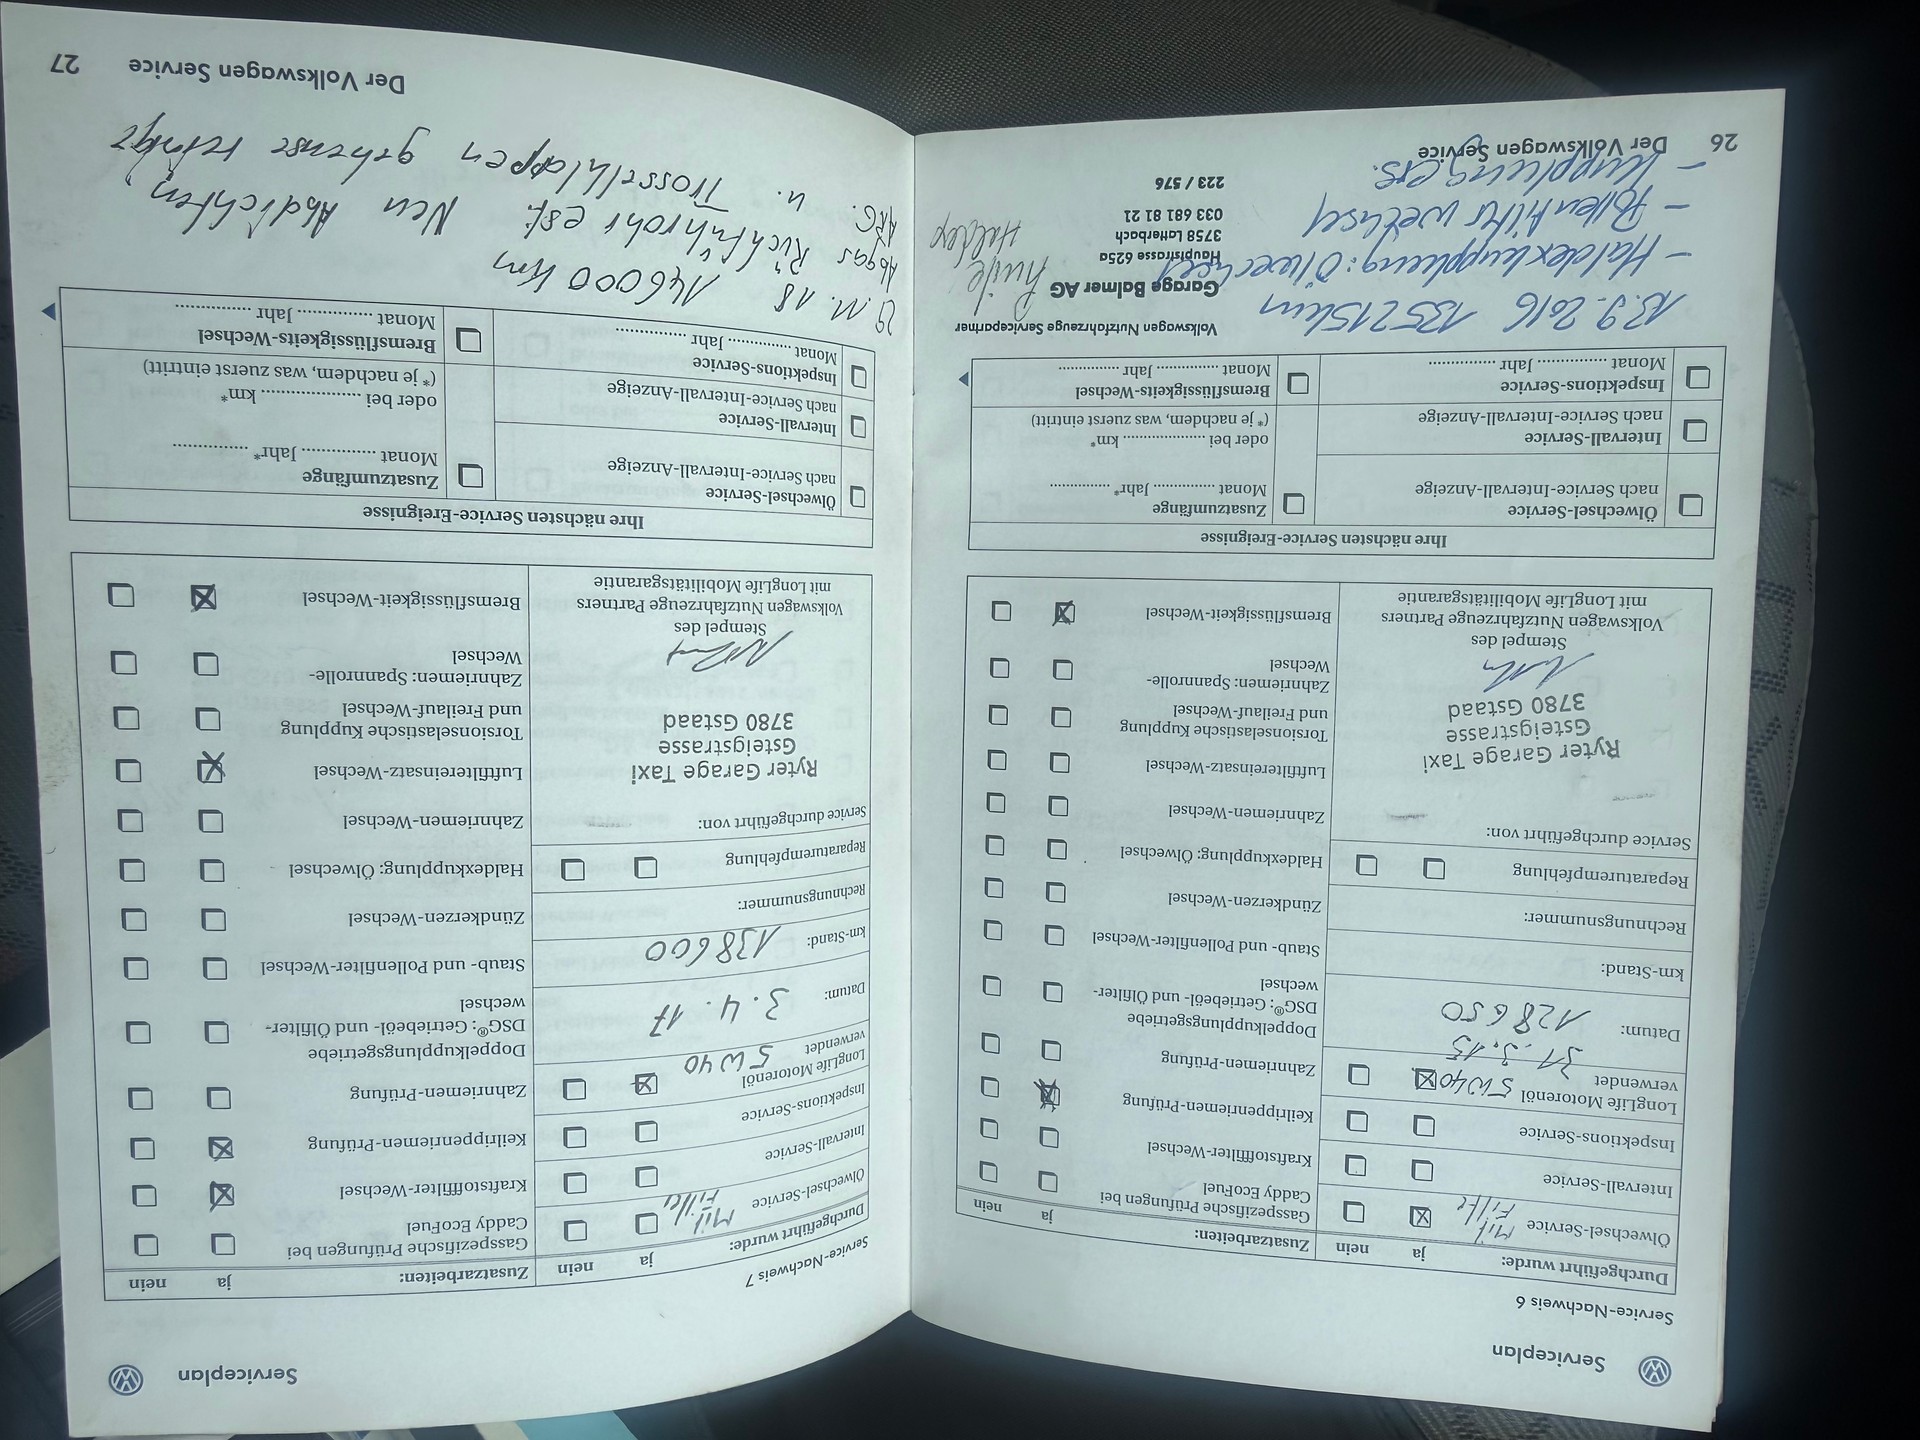 Serviceplan
Service-Nachweis 6
Durchgeführt wurde:
ja
nein
Ölwechsel-Service
Mit Filter
Intervall-Service
Inspektions-Service
LongLife Motorenöl
verwendet
5W40
Datum:
31.3.15
128650
km-Stand:
Rechnungsnummer:
Reparaturempfehlung
Service durchgeführt von:
Ryter Garage Taxi
Gsteigstrasse
3780 Gstaad
Stempel des
Volkswagen Nutzfahrzeuge Partners
mit LongLife Mobilitätsgarantie
Zusatzarbeiten:
ja
nein
Gasspezifische Prüfungen bei
Caddy EcoFuel
Kraftstofffilter-Wechsel
Keilrippenriemen-Prüfung
Zahnriemen-Prüfung
Doppelkupplungsgetriebe
DSG®: Getriebeöl- und Ölfilter-
wechsel
Staub- und Pollenfilter-Wechsel
Zündkerzen-Wechsel
Haldexkupplung: Ölwechsel
Zahnriemen-Wechsel
Luftfiltereinsatz-Wechsel
Torsionselastische Kupplung
und Freilauf-Wechsel
Zahnriemen: Spannrolle-
Wechsel
Bremsflüssigkeit-Wechsel
Ihre nächsten Service-Ereignisse
Ölwechsel-Service
nach Service-Intervall-Anzeige
Intervall-Service
nach Service-Intervall-Anzeige
Inspektions-Service
Monat ............... Jahr ...............
Zusatzumfänge
Monat ............... Jahr* ...............
oder bei .................... km*
(* je nachdem, was zuerst eintritt)
Bremsflüssigkeits-Wechsel
Monat ............... Jahr ...............
13.9.2016 135215km
- Haldexkupplung: Ölwechsel
- Pollenfilter wechsel
- Kupplung ers.
Volkswagen Nutzfahrzeuge Servicepartner
Garage Balmer AG
Hauptstrasse 625a
3758 Latterbach
033 681 81 21
223 / 576
Haldex
26
Der Volkswagen Service
Serviceplan
Service-Nachweis 7
Durchgeführt wurde:
ja
nein
Ölwechsel-Service
Mit Filter
Intervall-Service
Inspektions-Service
LongLife Motorenöl
verwendet
5W40
Datum:
3.4.17
km-Stand:
138600
Rechnungsnummer:
Reparaturempfehlung
Service durchgeführt von:
Ryter Garage Taxi
Gsteigstrasse
3780 Gstaad
Stempel des
Volkswagen Nutzfahrzeuge Partners
mit LongLife Mobilitätsgarantie
Zusatzarbeiten:
ja
nein
Gasspezifische Prüfungen bei
Caddy EcoFuel
Kraftstofffilter-Wechsel
Keilrippenriemen-Prüfung
Zahnriemen-Prüfung
Doppelkupplungsgetriebe
DSG®: Getriebeöl- und Ölfilter-
wechsel
Staub- und Pollenfilter-Wechsel
Zündkerzen-Wechsel
Haldexkupplung: Ölwechsel
Zahnriemen-Wechsel
Luftfiltereinsatz-Wechsel
Torsionselastische Kupplung
und Freilauf-Wechsel
Zahnriemen: Spannrolle-
Wechsel
Bremsflüssigkeit-Wechsel
Ihre nächsten Service-Ereignisse
Ölwechsel-Service
nach Service-Intervall-Anzeige
Intervall-Service
nach Service-Intervall-Anzeige
Inspektions-Service
Monat ............... Jahr ...............
Zusatzumfänge
Monat ............... Jahr* ...............
oder bei .................... km*
(* je nachdem, was zuerst eintritt)
Bremsflüssigkeits-Wechsel
Monat ............... Jahr ...............
29.11.18 146000 km
Abgas Rückführohr Neu Abdichten,
u. Drosselklappen gehäuse
Der Volkswagen Service
27